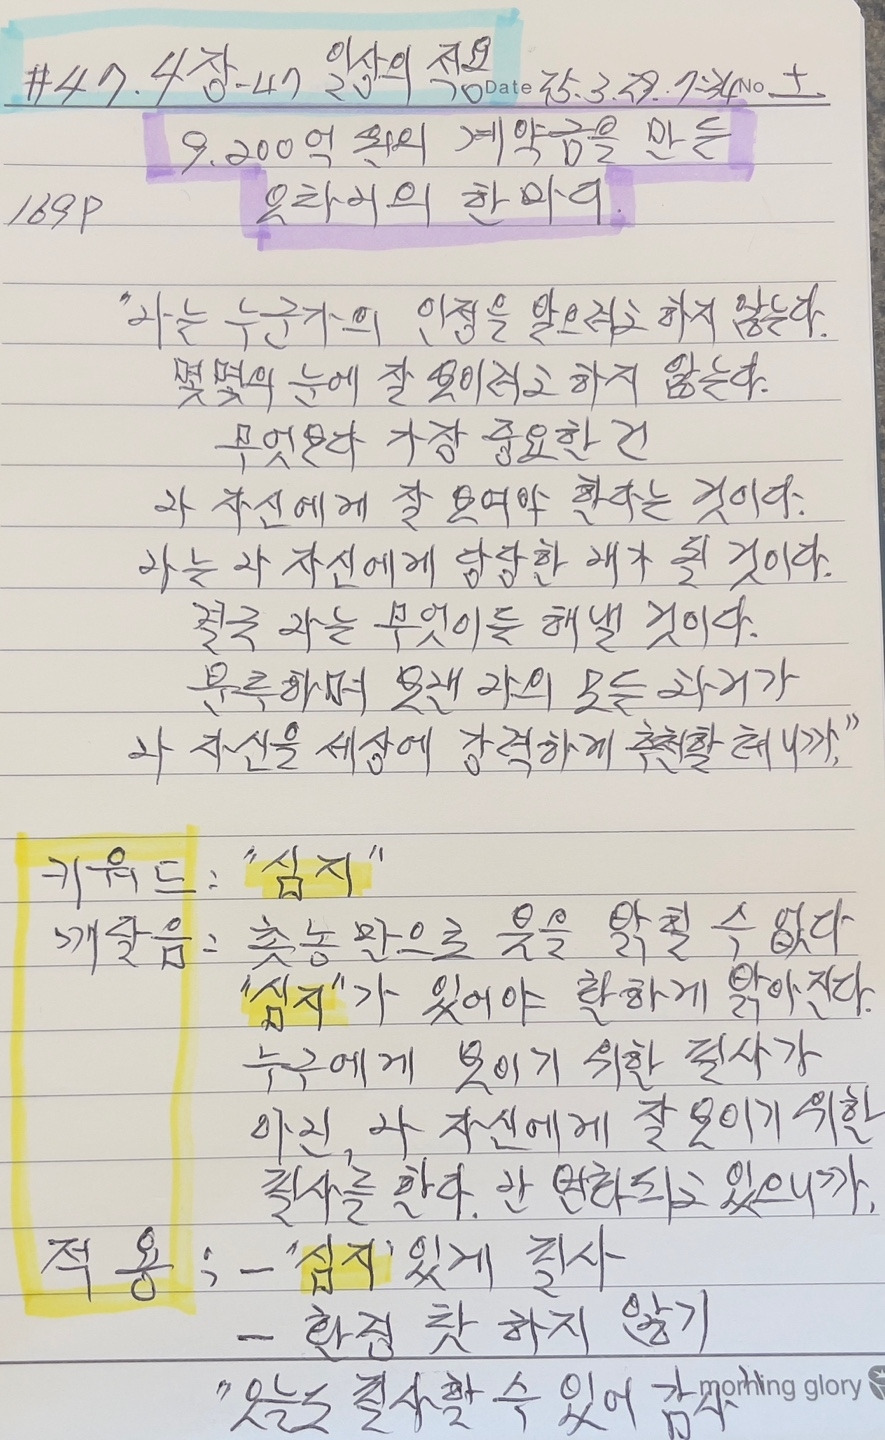 #47. 4장-47 일상의 적요
Date 25.3.29. 7:34 No. 土
9,200억 원의 계약금을 만든
오타니의 한 마디.
169P
"나는 누군가의 인정을 받으려고 하지 않는다.
몇몇의 눈에 잘 보이려고 하지 않는다.
무엇보다 가장 중요한 건
나 자신에게 잘 보여야 한다는 것이다.
나는 나 자신에게 당당한 내가 될 것이다.
결국 나는 무엇이든 해낼 것이다.
묵묵하며 보낸 나의 모든 하루가
나 자신을 세상에 강력하게 추천할 테니까."
키워드 : "심지"
깨달음 : 촛농만으로 불을 밝힐 수 없다
"심지"가 있어야 환하게 밝아진다.
누구에게 보이기 위한 필사가
아닌, 나 자신에게 잘 보이기 위한
필사를 한다. 난 변화되고 있으니까.
적용 : - '심지' 있게 필사
- 환경 탓 하지 않기
"오늘도 필사할 수 있어 감사"
morning glory